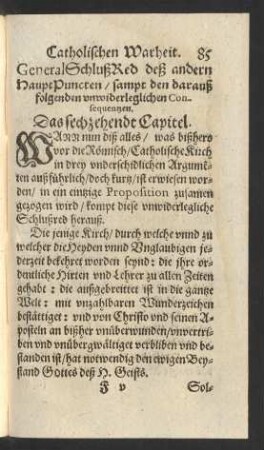 Catholischen Warheit. 85
GeneralSchlußRed deß andern
HauptPuncten / sampt den darauß
folgenden vnwiderleglichen Con-
sequentzen.
Das sechzehendt Capitel.
WAnn nun diß alles / was bißhero
vor die Römisch / Catholische Kirch
in drey vnderschidlichen Argumē-
ten außführlich / doch kurtz / ist erwiesen wor-
den / in ein eintzige Proposition zusamen
gezogen wird / kompt diese vnwiderlegliche
Schlußred herauß.
Die jenige Kirch / durch welche vnnd zu
welcher die Heyden vnnd Vnglaubigen je-
derzeit bekehret worden seynd: die jhre or-
dentliche Hirten vnd Lehrer zu allen Zeiten
gehabt: die außgebreittet ist in die gantze
Welt: mit vnzahlbaren Wunderzeichen
bestättiget: vnd von Christo vnd seinen A-
posteln an bißher vnüberwunden / vnvertri-
ben vnd vnübergwältiget verbliben vnd be-
standen ist / hat notwendig den ewigen Bey-
stand Gottes deß H. Geists.
F v Sol-